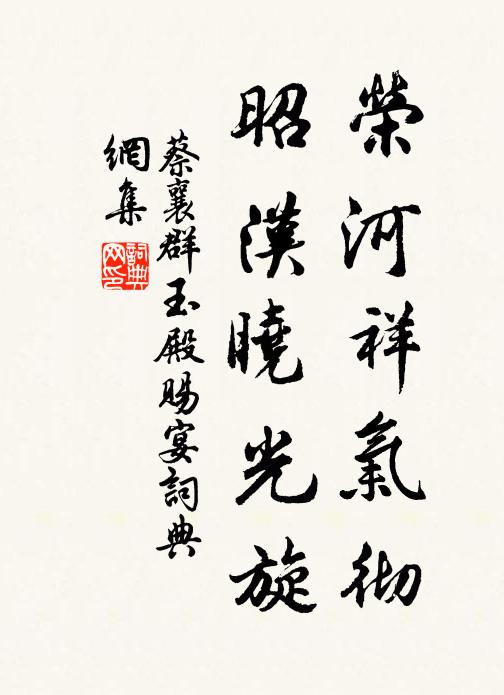 榮河祥氣彻
昭漢曉光旋
蔡襄群玉殿賜宴詞典
網集
詞典网印